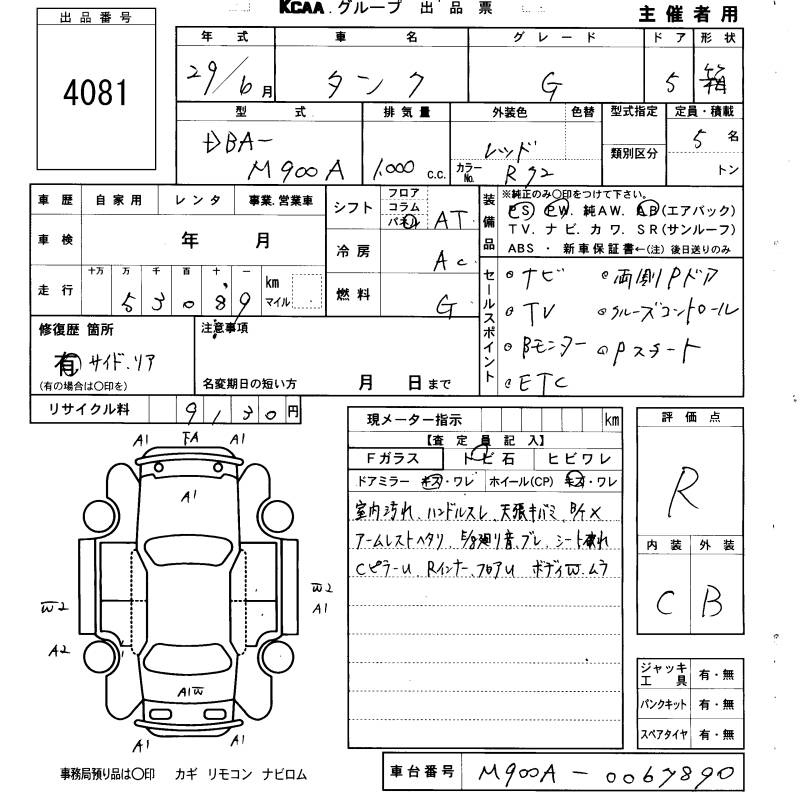 KCAA.グループ 出品票
主催者用
出品番号
4081
年式 車名 グレード ドア 形状
29/6月 タンク G 5 箱
型式 排気量 外装色 色替 型式指定 定員・積載
類別区分
DBA-
M900A 1,000 c.c. レッド カラーNo. R72 5名
トン
車歴 自家用 レンタ 事業.営業車
車検 年 月
走行 十万 万 千 百 十 一 km マイル
53089
シフト フロア コラム パネル AT
冷房 AC
燃料 G
装備品 ※純正のみ〇印をつけて下さい。
PS. PW. 純AW. AB(エアバック)
TV. ナビ. カワ. SR(サンルーフ)
ABS ・ 新車保証書←(注)後日送りのみ
セールスポイント
ナビ 両側Pドア
TV クルーズコントロール
Bモニター Pスタート
ETC
修復歴 箇所 注意事項
有 サイド.リア
(有の場合は〇印を) 名変期日の短い方 月 日まで
リサイクル料 9130円
現メーター指示 km
【査定員記入】
Fガラス トビ石 ヒビワレ
ドアミラー キズ・ワレ ホイール(CP) キズ・ワレ
室内汚れ、ハンドルスレ、天張キバミ、
アームレストヘタリ、 廻り音、ブレ、シート
CピラーU、Rインナー、フロアU ボディW、ムラ
評価点
R
内装 外装
C B
ジャッキ工具 有・無
パンクキット 有・無
スペアタイヤ 有・無
A1 FA A1
A1
W2
A2
W2
A1
A1W
A1 A1
事務局預り品は〇印 カギ リモコン ナビロム
車台番号 M900A-0067890